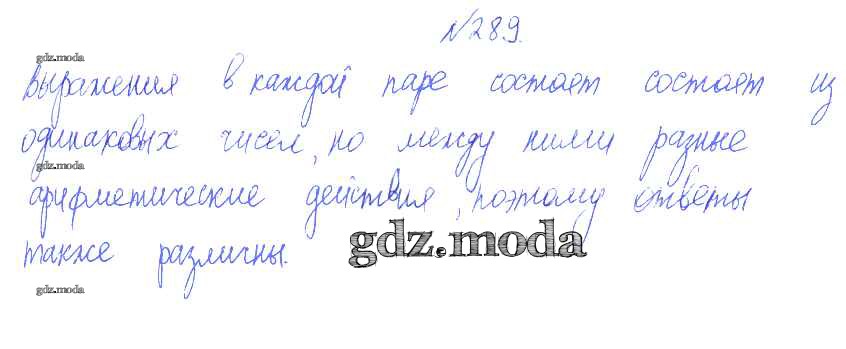 №289.
gdz.moda
Выражения в каждой паре состоят состоят из
одинаковых чисел, но между ними разные
gdz.moda
арифметические действия, поэтому ответы
также различны.
gdz.moda
gdz.moda